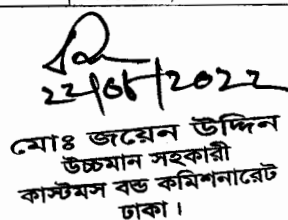 ২২/০৮/২০২২
মোঃ জয়েন উদ্দিন
উচ্চমান সহকারী
কাস্টমস বন্ড কমিশনারেট
ঢাকা।